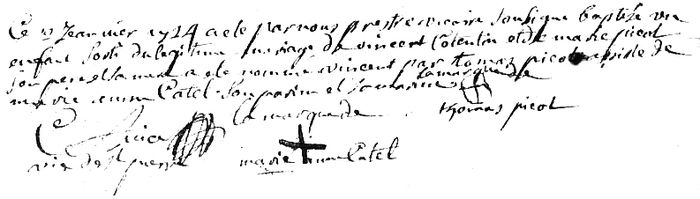 Ce 21 Jeanvier 1714 a ete par nous prestre vicaire soubsigné baptisé un
enfant sorti du legitime mariage de vincent Cotentin et de marie picot
son pere et sa mere a ete nommé vincent par tomas picot assisté de
marie anne Catel son parin et sa marine
la marque de thomas picot
vic de St pierre marie anne Catel